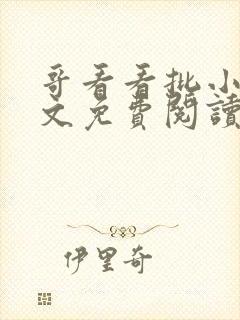 哥看看批小
文免費閱讀
伊里奇